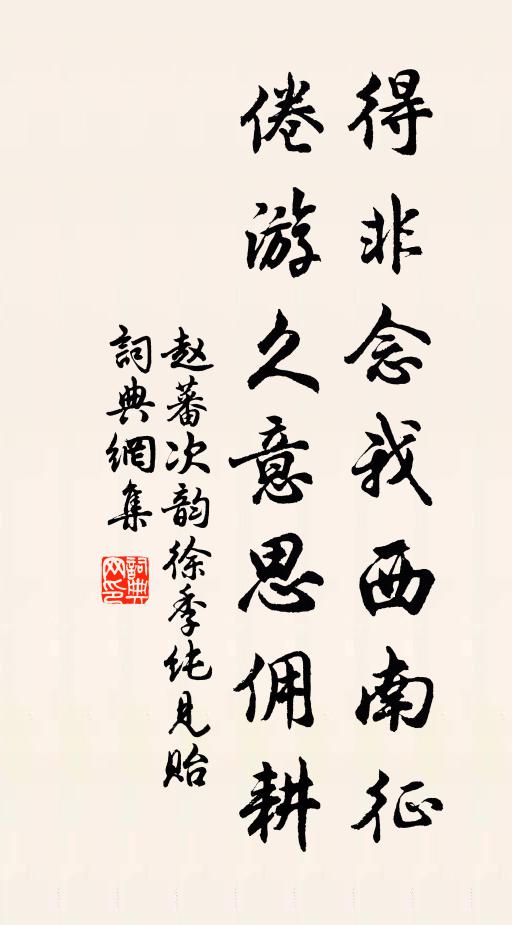 得非念我西南征
倦游久意思佣耕
赵蕃次韵徐季纯见贻
詞典網集
詞典
网印